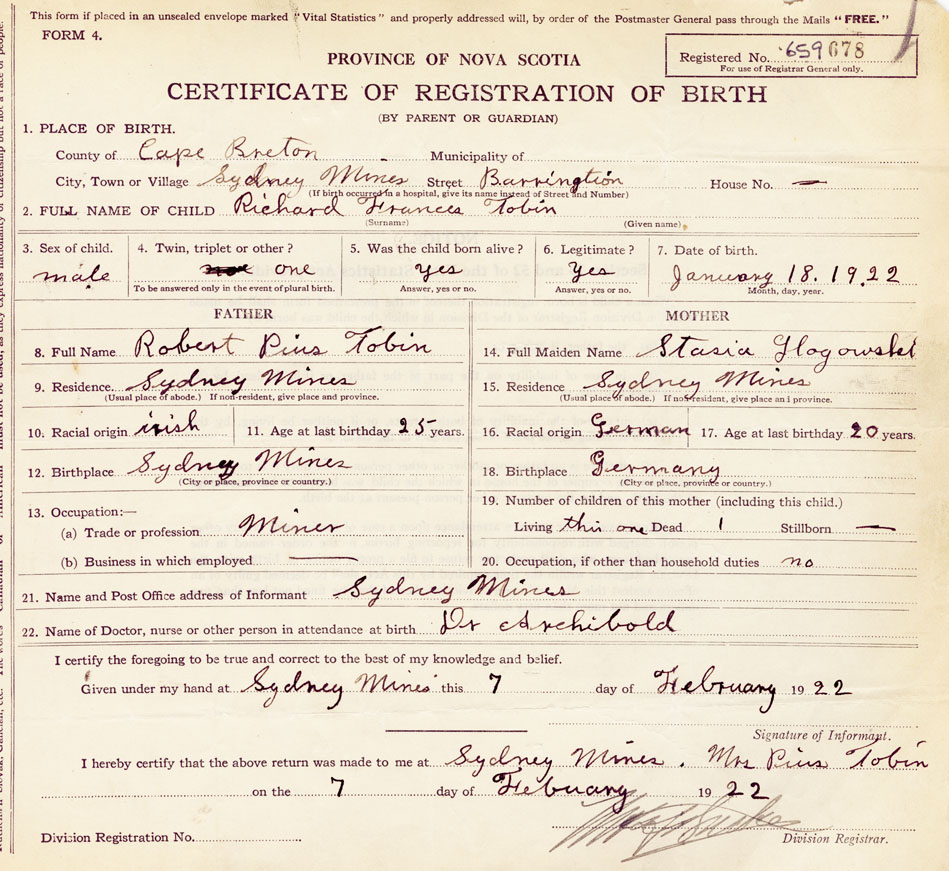 This form if placed in an unsealed envelope marked "Vital Statistics" and properly addressed will, by order of the Postmaster General pass through the Mails "FREE."
FORM 4.
Registered No. 659678
For use of Registrar General only.
PROVINCE OF NOVA SCOTIA
CERTIFICATE OF REGISTRATION OF BIRTH
(BY PARENT OR GUARDIAN)
1. PLACE OF BIRTH.
County of Cape Breton Municipality of
City, Town or Village Sydney Mines Street Barringtion House No. —
(If birth occurred in a hospital, give its name instead of Street and Number)
2. FULL NAME OF CHILD Richard Frances Tobin
(Surname) (Given name)
3. Sex of child. 4. Twin, triplet or other? 5. Was the child born alive? 6. Legitimate? 7. Date of birth.
male one yes yes January 18. 1922
To be answered only in the event of plural birth. Answer, yes or no. Answer, yes or no. Month, day, year.
FATHER MOTHER
8. Full Name Robert Pius Tobin 14. Full Maiden Name Stasia
9. Residence Sydney Mines 15. Residence Sydney Mines
(Usual place of abode.) If non-resident, give place and province. (Usual place of abode.) If non-resident, give place and province.
10. Racial origin irish 11. Age at last birthday 25 years. 16. Racial origin German 17. Age at last birthday 20 years.
12. Birthplace Sydney Mines 18. Birthplace Germany
(City or place, province or country.) (City or place, province or country.)
13. Occupation:— 19. Number of children of this mother (including this child.)
(a) Trade or profession Miner Living this one Dead 1 Stillborn —
(b) Business in which employed — 20. Occupation, if other than household duties no
21. Name and Post Office address of Informant Sydney Mines
22. Name of Doctor, nurse or other person in attendance at birth Dr Archibold
I certify the foregoing to be true and correct to the best of my knowledge and belief.
Given under my hand at Sydney Mines this 7 day of February 1922
Signature of Informant.
I hereby certify that the above return was made to me at Sydney Mines. Mrs Pius Tobin
on the 7 day of Febuary 1922
Division Registration No. Division Registrar.